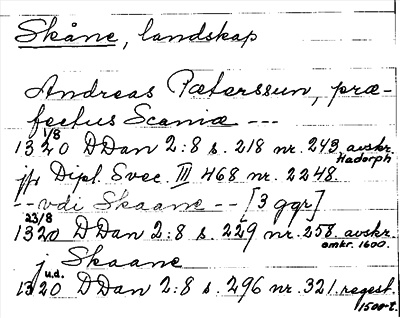 Skåne, landskap
Andreas Pæterssun, præ-
fectus Scaniæ ---
1/8
1320 DDan 2:8 s. 218 nr. 243 avskr.
Hadorph
jfr Dipl. Svec. III 468 nr. 2248.
-- vdi Skaane -- [3 ggr]
23/8
1320 DDan 2:8 s. 229 nr. 258 avskr.
omkr. 1600.
j Skaane
u.d.
1320 DDan 2:8 s. 296 nr. 321. regest.
1500-t.